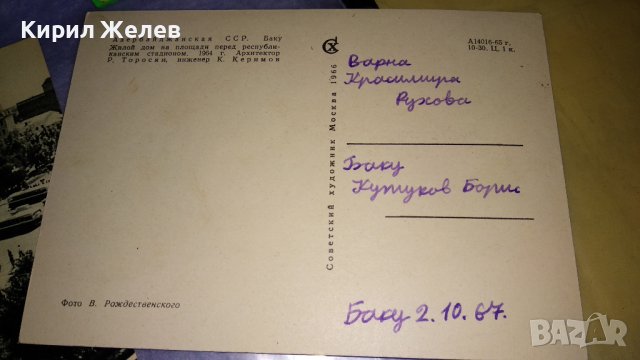 Кирил Желев
Азербайджанская ССР. Баку
Жилой дом на площади перед республи-
канским стадионом. 1964 г. Архитектор
Р. Торосян, инженер К. Керимов
Советский художник Москва 1966
А14016-65 г.
10-30. Ц. 1 к.
Варна
Красимира
Рухова
Баку
Кутуков Борис
Баку 2.10.67.
Фото В. Рождественского
BAZAR.bg